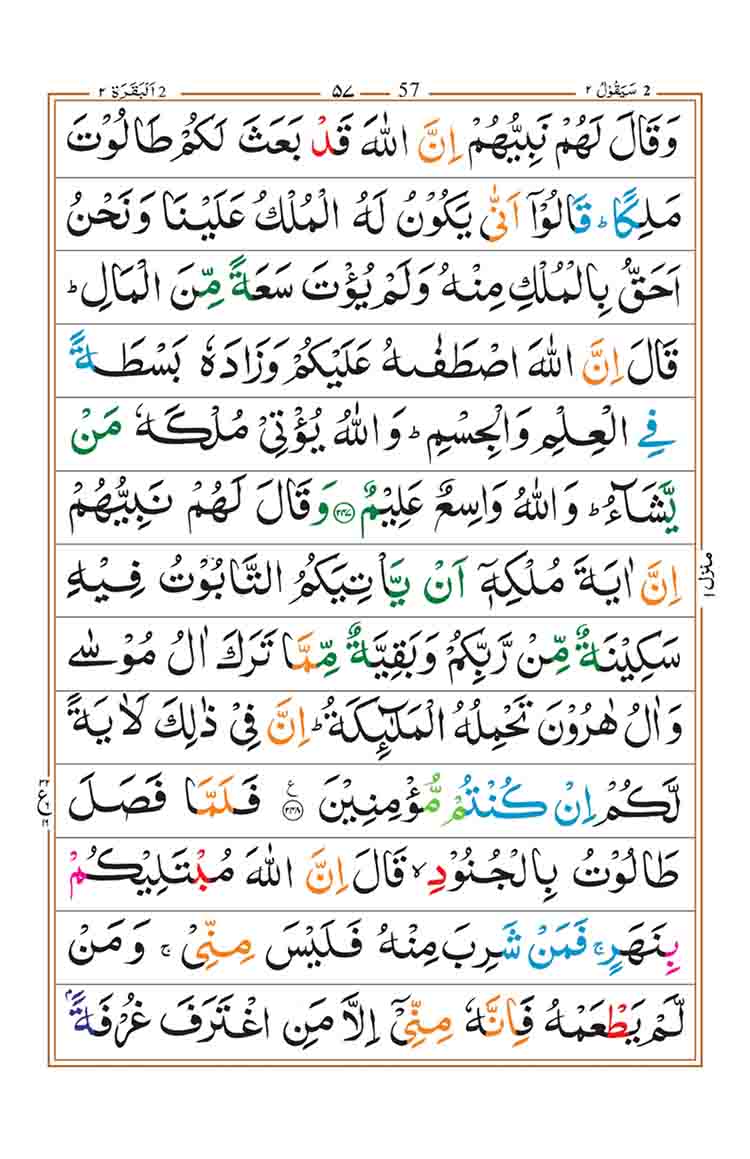 2 سَيَقُوْلُ ٢ 57 ۵۷ 2 اَلْبَقَرَة ٢
وَقَالَ لَهُمْ نَبِيُّهُمْ اِنَّ اللّٰهَ قَدْ بَعَثَ لَكُمْ طَالُوْتَ
مَلِكًا ؕ قَالُوْۤا اَنّٰى يَكُوْنُ لَهُ الْمُلْكُ عَلَيْنَا وَنَحْنُ
اَحَقُّ بِالْمُلْكِ مِنْهُ وَلَمْ يُؤْتَ سَعَةً مِّنَ الْمَالِ ؕ
قَالَ اِنَّ اللّٰهَ اصْطَفٰىهُ عَلَيْكُمْ وَزَادَهٗ بَسْطَةً
فِي الْعِلْمِ وَالْجِسْمِ ؕ وَاللّٰهُ يُؤْتِيْ مُلْكَهٗ مَنْ
يَّشَآءُ ؕ وَاللّٰهُ وَاسِعٌ عَلِيْمٌ ۝۲۴۷ وَقَالَ لَهُمْ نَبِيُّهُمْ
اِنَّ اٰيَةَ مُلْكِهٖۤ اَنْ يَّاْتِيَكُمُ التَّابُوْتُ فِيْهِ
منزل ١
سَكِيْنَةٌ مِّنْ رَّبِّكُمْ وَبَقِيَّةٌ مِّمَّا تَرَكَ اٰلُ مُوْسٰى
وَاٰلُ هٰرُوْنَ تَحْمِلُهُ الْمَلٰٓئِكَةُ ؕ اِنَّ فِيْ ذٰلِكَ لَاٰيَةً
لَّكُمْ اِنْ كُنْتُمْ مُّؤْمِنِيْنَ ۝۲۴۸ ع فَلَمَّا فَصَلَ
ع
طَالُوْتُ بِالْجُنُوْدِ ۙ قَالَ اِنَّ اللّٰهَ مُبْتَلِيْكُمْ
بِنَهَرٍ ۚ فَمَنْ شَرِبَ مِنْهُ فَلَيْسَ مِنِّيْ ۚ وَمَنْ
لَّمْ يَطْعَمْهُ فَاِنَّهٗ مِنِّيْۤ اِلَّا مَنِ اغْتَرَفَ غُرْفَةًۢ